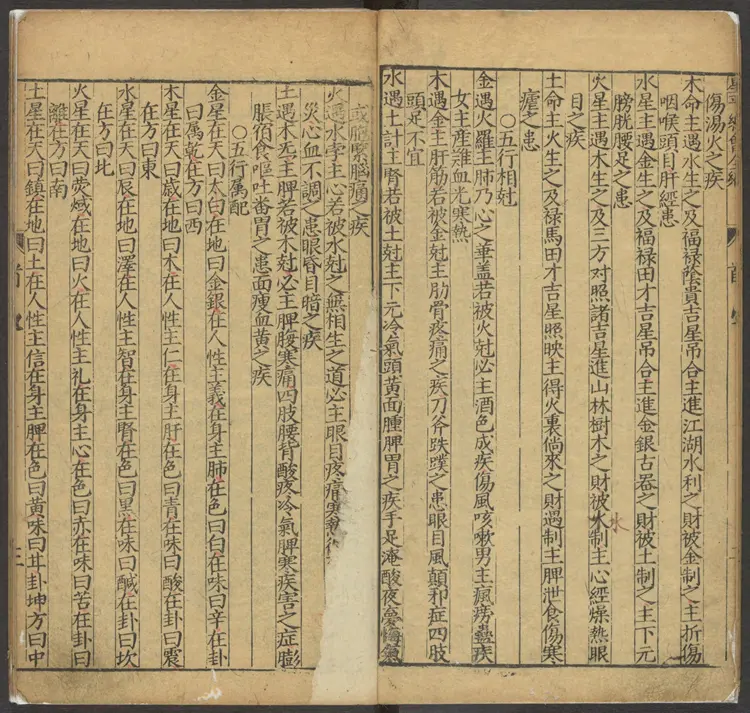 傷湯火之疾
木命主遇水生之及福祿蔭貴吉星吊合主進江湖水利之財被金制之主折傷
咽喉頭目肝經患
水星主遇金生之及福祿田才吉星吊合主進金銀古器之財被土制之主下元
膀胱腰足之患
火星主遇木生之及三方对照諸吉星進山林樹木之財被水制主心經燥熱眼
水
目之疾
土命主火生之及祿馬田才吉星照映主得火裏倘來之財遇制主脾泄食傷寒
瘧之患
〇五行相尅
金遇火羅主肺乃心之華盖若被火尅必主酒色成疾傷風咳嗽男主瘋癆蠱疾
女主產難血光寒熱
木遇金主肝筋若被金尅主肋骨疼痛之疾刀斧跌蹼之患眼目風顛邪症四肢
頭足不宜
水遇土計主腎若被土尅主下元冷氣頭黃面腫脾胃之疾手足淹酸夜夢
之疾
火遇水孛主心若被水尅之無相生之道必主眼目疼痛寒熱
災心血不調之患眼昏目暗之疾
土遇木炁主脾若被木尅必主脾腹寒痛四肢腰背酸疼冷氣脾寒疾害之症膨
脹酒食嘔吐番胃之患面瘦血黃之疾
〇五行属配
金星在天曰太白在地曰金銀在人性主義在身主肺在色曰白在味曰辛在卦
曰属乾在方曰西
木星在天曰歲在地曰木在人性主仁在身主肝在色曰青在味曰酸在卦曰震
在方曰東
水星在天曰辰在地曰澤在人性主智在身主腎在色曰黑在味曰鹹在卦曰坎
在方曰北
火星在天曰熒惑在地曰火在人性主礼在身主心在色曰赤在味曰苦在卦曰
離在方曰南
土星在天曰鎮在地曰土在人性主信在身主脾在色曰黃味曰甘卦坤方曰中